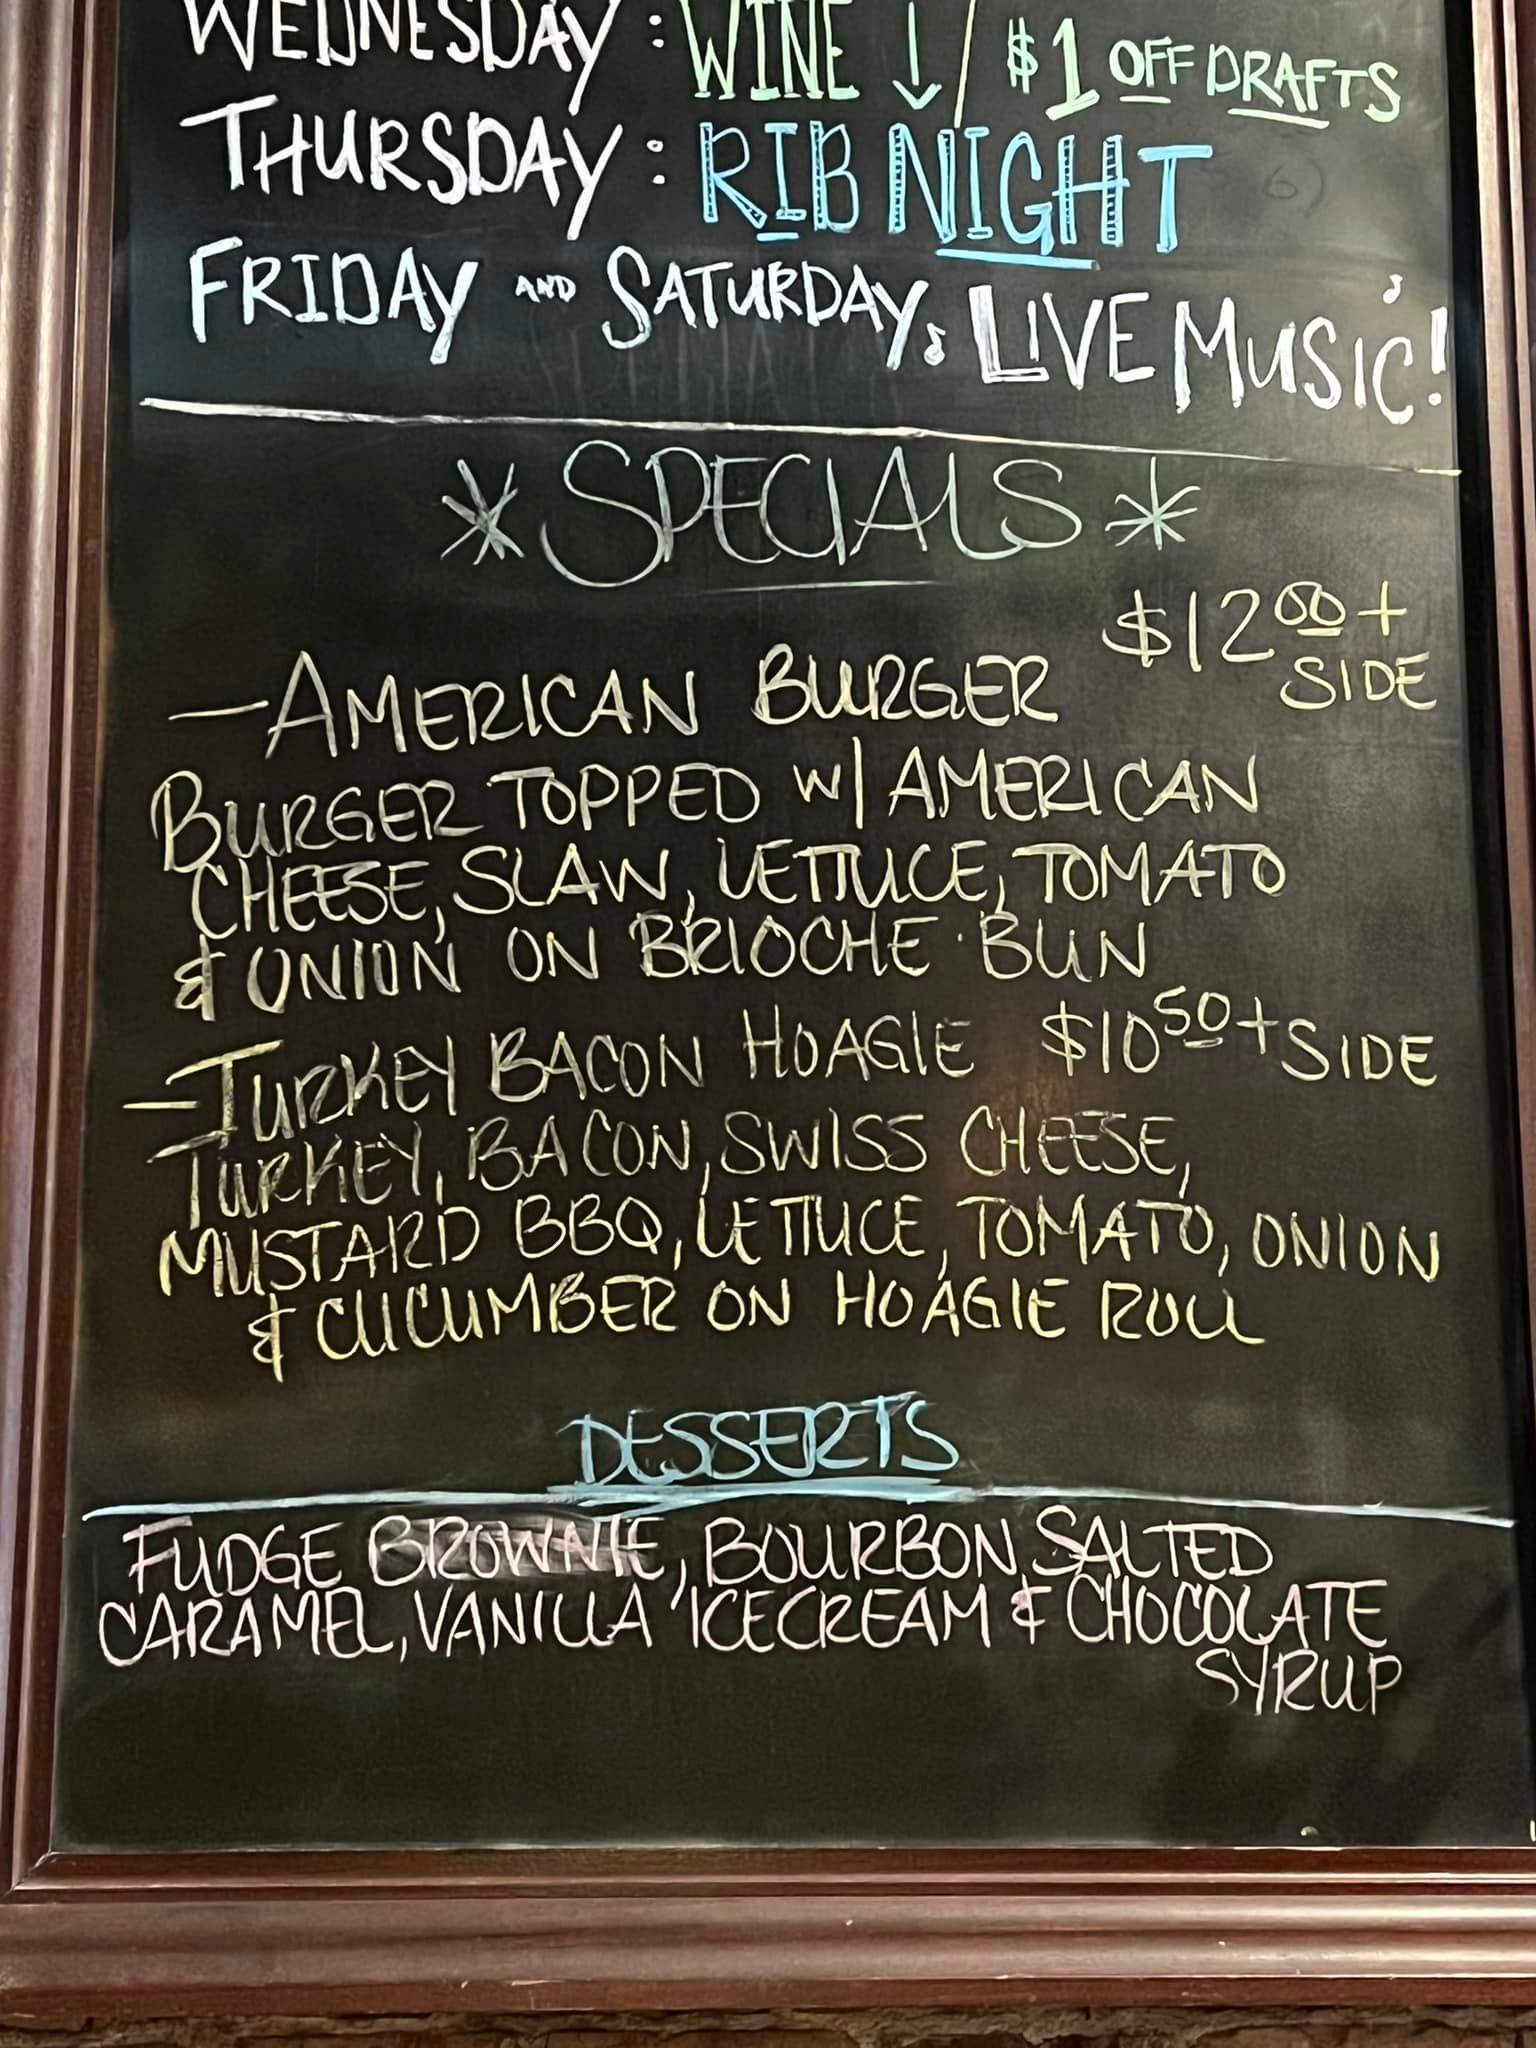 WEDNESDAY : WINE ↓ / $1 OFF DRAFTS
THURSDAY : RIB NIGHT
FRIDAY AND SATURDAY ♪ LIVE MUSIC! ♪
* SPECIALS *
$12.00 + SIDE
- AMERICAN BURGER
BURGER TOPPED W/ AMERICAN
CHEESE, SLAW, LETTUCE, TOMATO
& ONION ON BRIOCHE BUN
- TURKEY BACON HOAGIE $10.50 + SIDE
TURKEY, BACON, SWISS CHEESE,
MUSTARD BBQ, LETTUCE, TOMATO, ONION
& CUCUMBER ON HOAGIE ROLL
DESSERTS
FUDGE BROWNIE, BOURBON SALTED
CARAMEL, VANILLA ICECREAM & CHOCOLATE
SYRUP